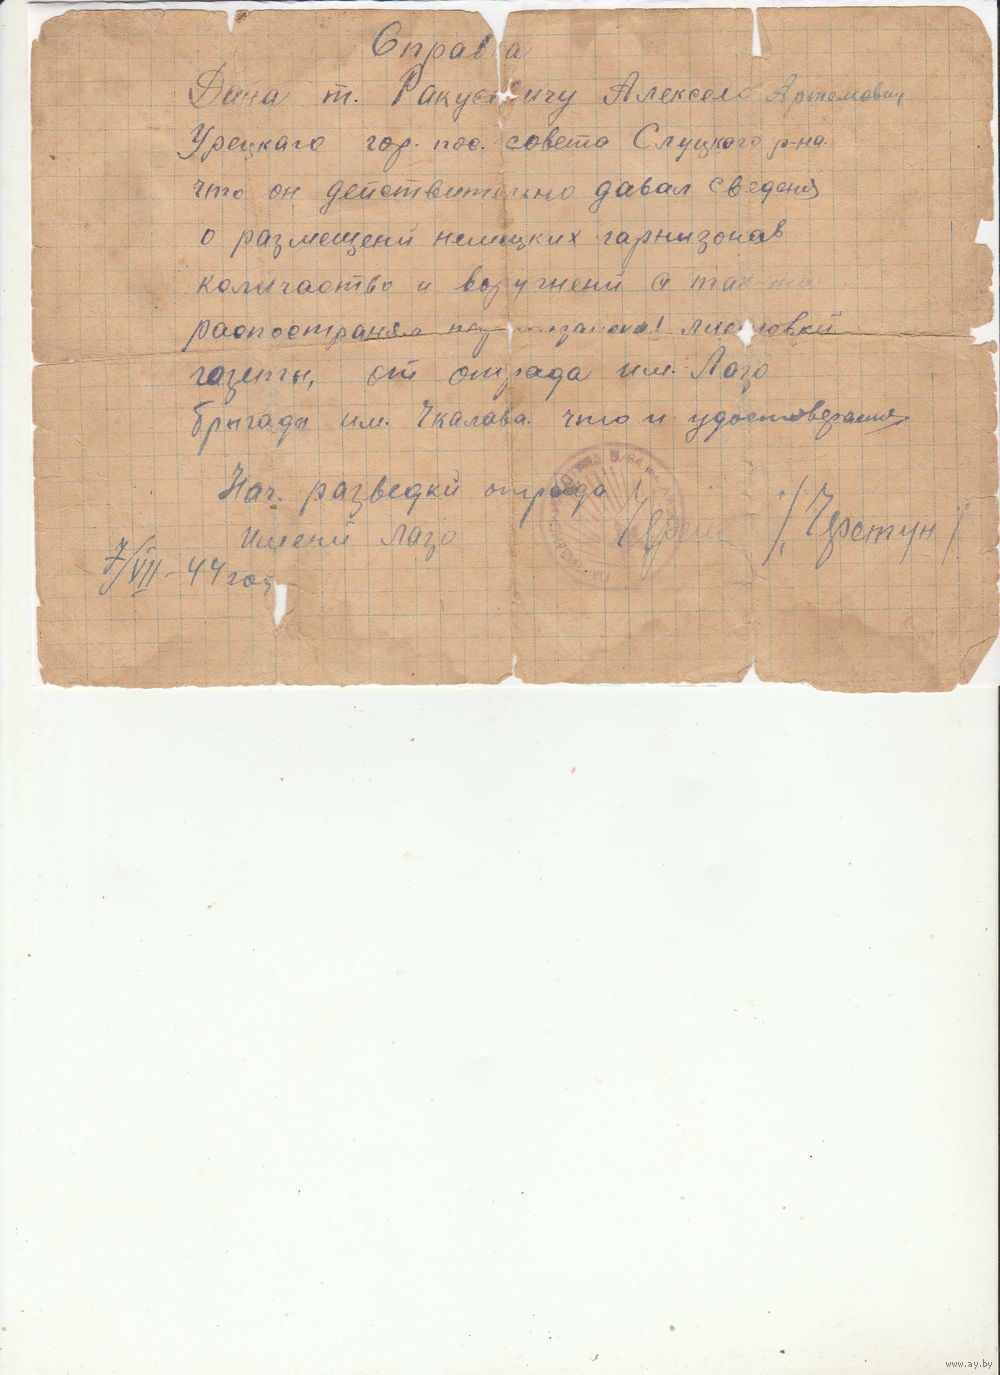 Справка
Дана т. Ракусевичу Алексею Артемович
Урецкаго гор. пос. совета Слуцкого р-на.
что он действительно давал сведеня
о размещени немецких гарнизонав
количаство и воружнени а так-же
распостранял листовки
газеты, от отряда им. Лазо
бригады им. Чкалава. что и удостоверается
Нач. разведки отряда
имени Лазо
7/VII-44 год
www.ay.by